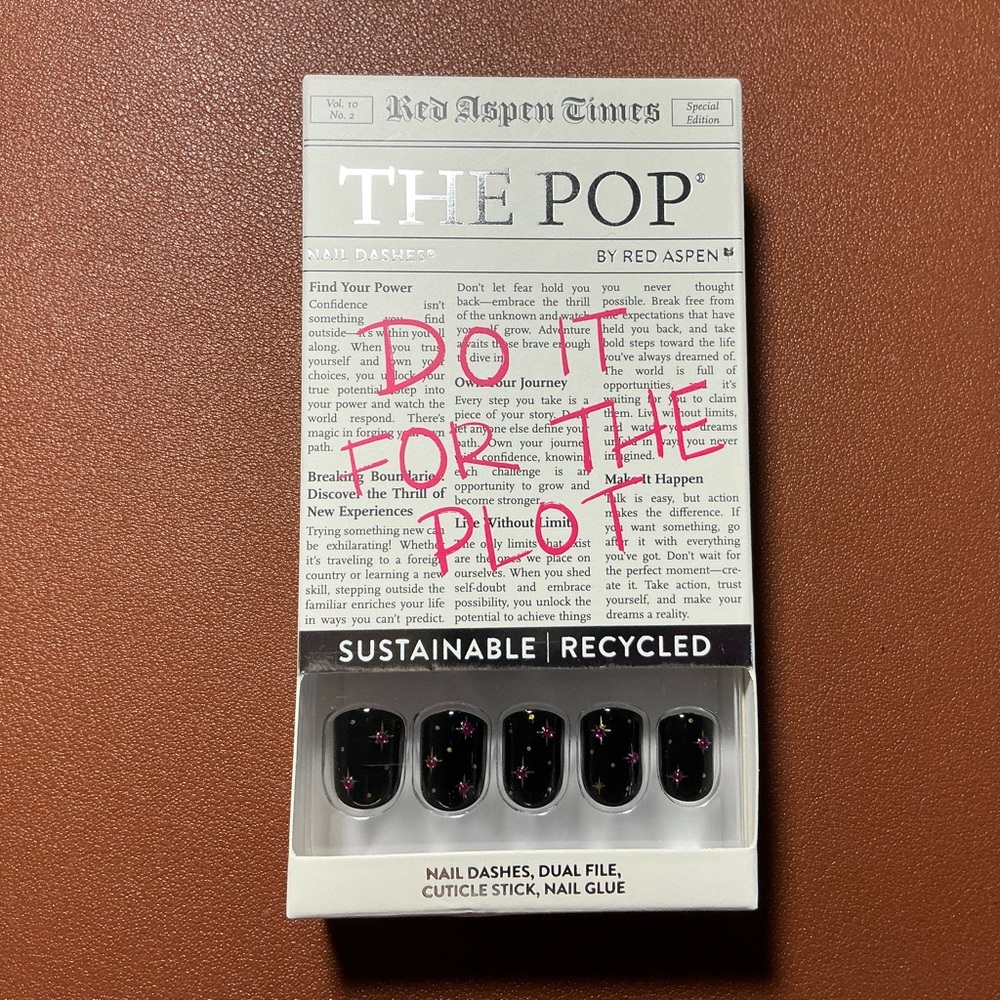 Vol. 10
No. 2
Red Aspen Times
Special
Edition
THE POP®
NAIL DASHES®
BY RED ASPEN
Find Your Power
Confidence isn't
something you find
outside—it's within you all
along. When you trust
yourself and own your
choices, you unlock your
true potential. Step into
your power and watch the
world respond. There's
magic in forging your own
path.
Breaking Boundaries
Discover the Thrill of
New Experiences
Trying something new can
be exhilarating! Whether
it's traveling to a foreign
country or learning a new
skill, stepping outside the
familiar enriches your life
in ways you can't predict.
Don't let fear hold you
back—embrace the thrill
of the unknown and watch
yourself grow. Adventure
awaits those brave enough
to dive in.
Own Your Journey
Every step you take is a
piece of your story. Don't
let anyone else define your
path. Own your journey
with confidence, knowing
each challenge is an
opportunity to grow and
become stronger.
Live Without Limits
The only limits that exist
are the ones we place on
ourselves. When you shed
self-doubt and embrace
possibility, you unlock the
potential to achieve things
you never thought
possible. Break free from
the expectations that have
held you back, and take
bold steps toward the life
you've always dreamed of.
The world is full of
opportunities, and it's
waiting for you to claim
them. Live without limits,
and watch your dreams
unfold in ways you never
imagined.
Make It Happen
Talk is easy, but action
makes the difference. If
you want something, go
after it with everything
you've got. Don't wait for
the perfect moment—cre-
ate it. Take action, trust
yourself, and make your
dreams a reality.
DO IT
FOR THE
PLOT
SUSTAINABLE | RECYCLED
NAIL DASHES, DUAL FILE,
CUTICLE STICK, NAIL GLUE